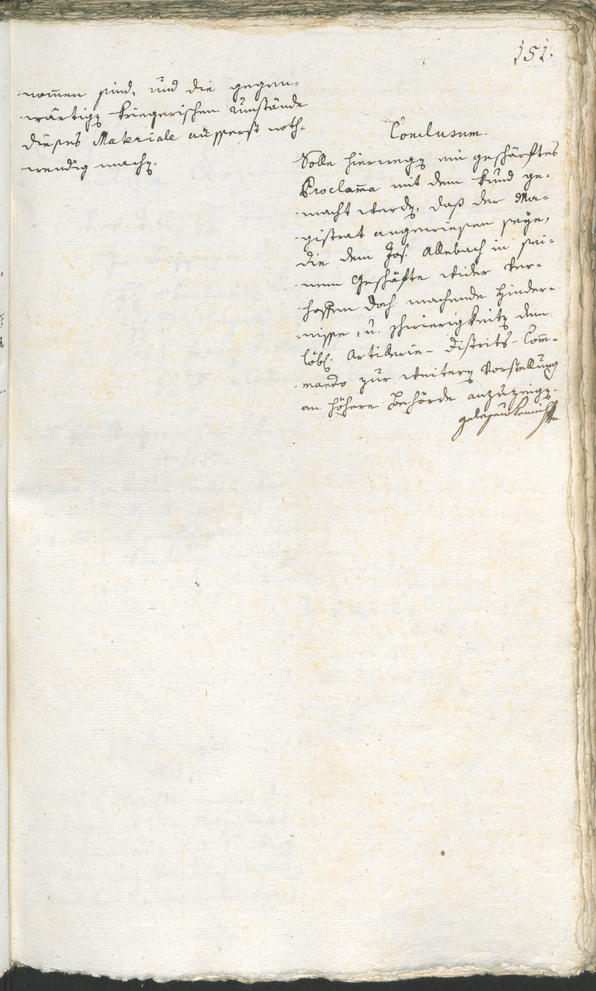 151.
nommen sind, und die gegen-
wärtigen kriegerischen Umstände
dieses Materiale äusserst noth-
wendig machen.
Conclusum.
Solle hierwegen ein geschärftes
Proclama mit dem kund ge-
macht werden, daß der Ma-
gistrat angewiesen seye,
die dem Jos. Allebach in sei-
nem Geschäfte wider Ver-
hoffen doch machende Hinder-
nisse, u. schwierigkeiten dem
löbl. Artillerie-Distrits-Com-
mando zur weitern Vorstellung
an höhere Behörde anzuzeigen.